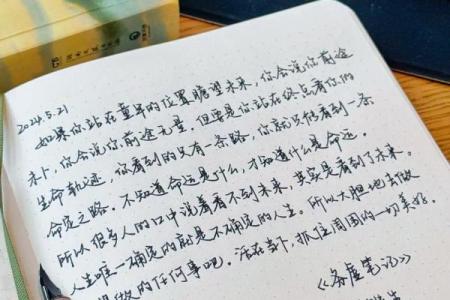 2024.5.21
如果你站在童年的位置瞻望未来,你会说你前途
未卜,你会说你前途无量。但要是你站在终点看你的
生命轨迹,你看到的只有一条路,你就只能看到一条
命定之路。不知道命运是什么,才知道什么是命运。
所以很多人的口中说着看不到未来,其实是看到了未来。
人生唯一确定的就是不确定的人生。所以大胆地去做
想做的任何事吧。活在当下,抓住周围的一切美好。
《务虚笔记》